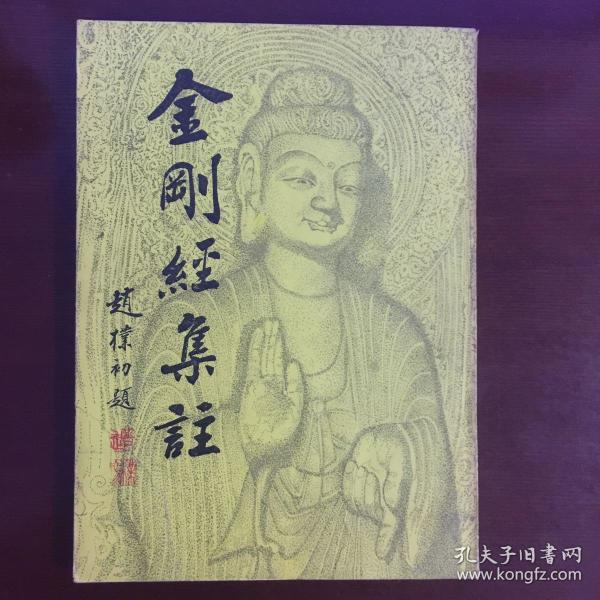 金剛經集註
趙樸初題
孔夫子旧書网
www.kongfz.com